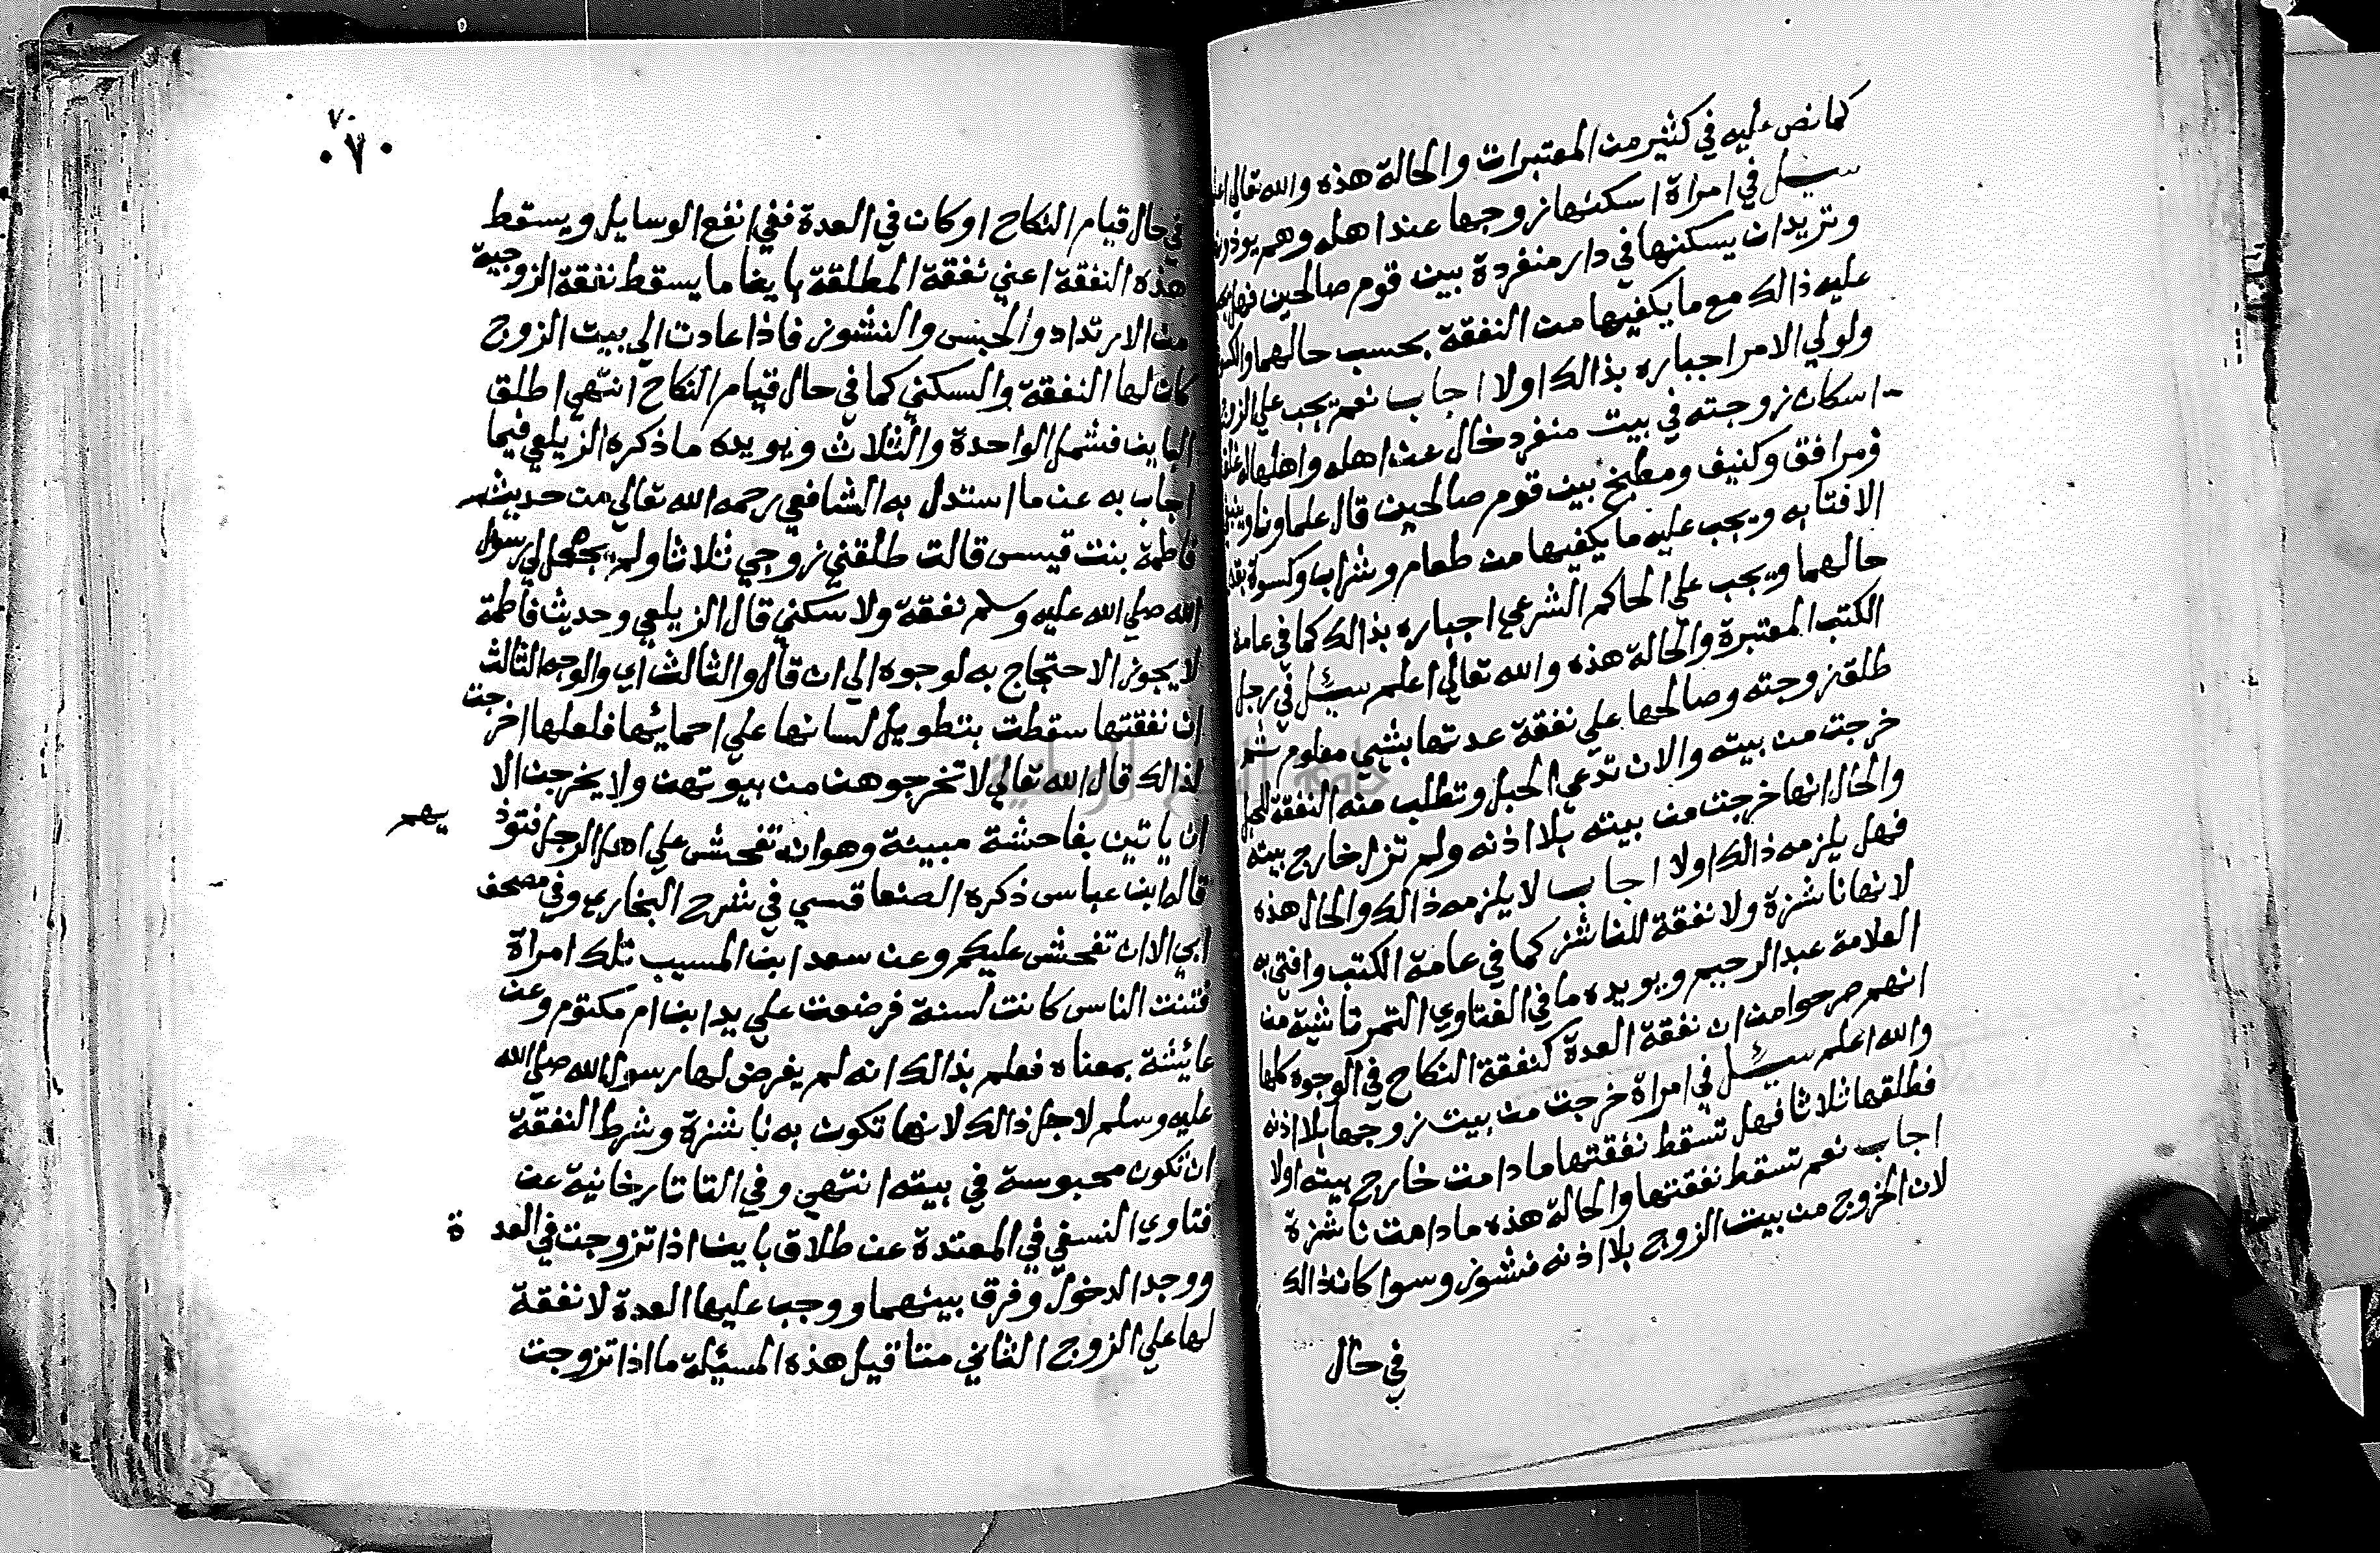 كما نص عليه في كثير من المعتبرات والحالة هذه والله تعالي
سيل في امراة اسكنها زوجها عند اهله وهم يوذونها
وتريد ان يسكنها في دار منفردة بين قوم صالحين فهل
عليه ذالك مع ما يكفيها من النفقة بحسب حالهما والكسوة
ولولي الامر اجباره بذالك اولا اجاب نعم يجب علي الزوج
اسكان زوجته في بيت منفرد خال عن اهله واهلها له غلق
ومرافق وكنيف ومطبخ بين قوم صالحين قال علماونا وينبغي
الافتا به ويجب عليه ما يكفيها من طعام وشراب وكسوة
حالهما ويجب علي الحاكم الشرعي اجباره بذالك كما في عامة
الكتب المعتبرة والحالة هذه والله تعالي اعلم سئيل في رجل
طلق زوجته وصالحها علي نفقة عدتها بشيي معلوم ثم
خرجت من بيته والان تدعي الحبل وتطلب منه النفقة للحبل
والحال انها خرجت من بيته بلا اذنه ولم تزل خارج بيته
فهل يلزمه ذالك اولا اجاب لا يلزمه ذالك والحال هذه
لانها ناشزة ولا نفقة للناشز كما في عامة الكتب وافتي به
العلامة عبد الرحيم ويويده ما في الفتاوي التمرتاشية من
انهم صرحوا من ان نفقة العدة كنفقة النكاح في الوجوه كلها
والله اعلم سئيل في امراة خرجت من بيت زوجها بلا اذنه
فطلقها ثلاثا فهل تسقط نفقتها ما دامت خارج بيته اولا
اجاب نعم تسقط نفقتها والحالة هذه ما دامت ناشزة
لان الخروج من بيت الزوج بلا اذنه نشوز وسوا كان ذالك
في حال
٧٠
٠٧٠
في حال قيام النكاح او كان في العدة ففي انفع الوسايل ويسقط
هذه النفقة اعني نفقة المطلقة بايضا ما يسقط نفقة الزوجية
من الارتداد والحبس والنشوز فاذا عادت الي بيت الزوج
كان لها النفقة والسكني كما في حال قيام النكاح انتهي اطلق
الباين فشمل الواحدة والثلاث ويويده ما ذكره الزيلعي فيما
اجاب به عن ما استدل به الشافعي رحمه الله تعالي من حديث
فاطمة بنت قيس قالت طلقني زوجي ثلاثا ولم يجعل لي رسول
الله صلي الله عليه وسلم نفقة ولا سكني قال الزيلعي وحديث فاطمة
لا يجوز الاحتجاج به لوجوه الي ان قال والثالث اي والوجه الثالث
ان نفقتها سقطت بتطويل لسانها علي احمائها فلعلها اخرجت
لذالك قال الله تعالي لا تخرجوهن من بيوتهن ولا يخرجن الا
ان ياتين بفاحشة مبينة وهو ان تفحش علي اهل الرجل فتوذيهم
قاله ابن عباس ذكره الصنعاقسي في شرح البخاري وفي مصحف
ابي الا ان تفحش عليكم وعن سعد ابن المسيب تلك امراة
فتنت الناس كانت لسنة فرضعت علي يد ابن ام مكتوم وعن
عائشة بمعناه فعلم بذالك انه لم يفرض لها رسول الله صلي الله
عليه وسلم لاجل ذالك لانها تكون به ناشزة وشرط النفقة
ان تكون محبوسة في بيته انتهي وفي التاتارخانية عن
فتاوي النسفي في المعتدة عن طلاق باين اذا تزوجت في العدة
ووجد الدخول وفرق بينهما ووجب عليها العدة لا نفقة
لها علي الزوج الثاني متناقيل هذه المسئيلة ما اذا تزوجت